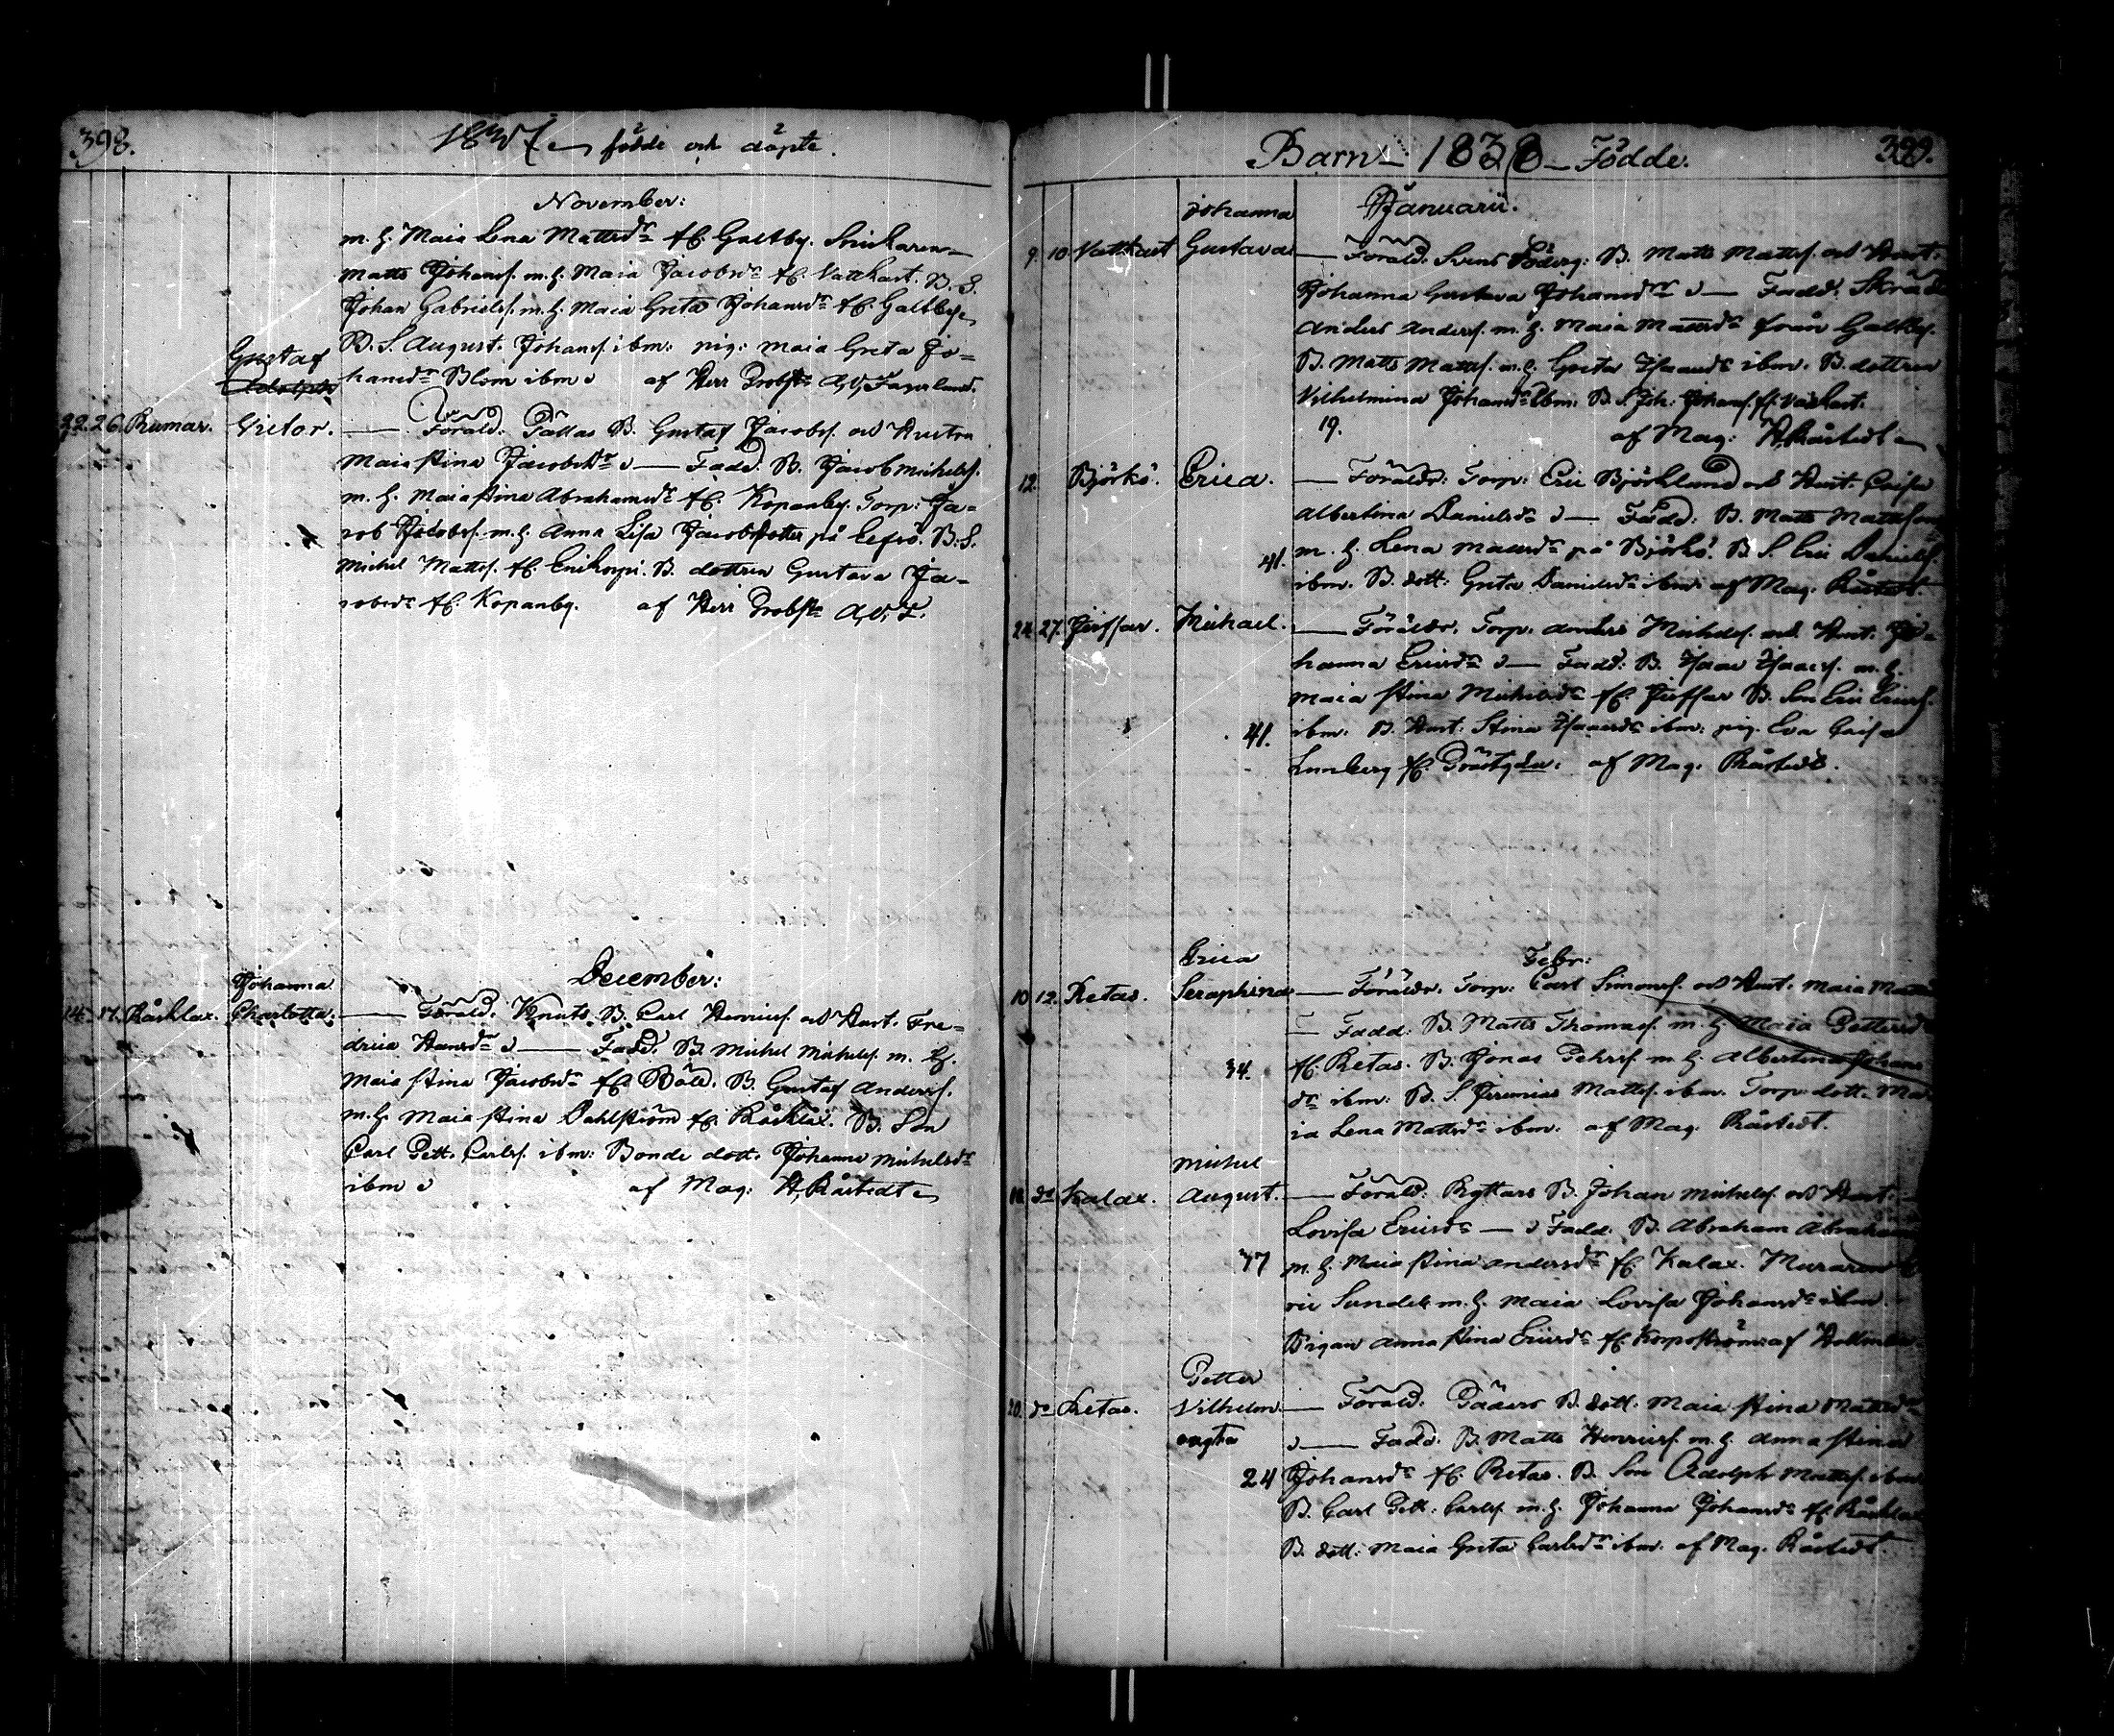 398.
1837 födde och döpte.
November:
m. h. Maia Lena Mattsdr fr. Galtby. Snickaren
Matts Johans. m. h. Maia Jacobsdr fr. Vattkast. B. S.
Johan Gabriels. m. h. Maia Greta Johansdr fr. Galtby
B. S. August Johans. ibm: pig: Maia Greta Jo=
hansdr Blom ibm af Herr Probst A. V.
Gustaf
Adolph
22. 26. Rumar. Victor. — Föräld. Pällas B. Gustaf Jacobs. och Hustru
Maia Stina Jacobsdr — Fadd. B. Jacob Michels.
m. h. Maia Stina Abrahamsdr fr. Kopanby. Torp: Ja=
cob Jacobs. m. h. Anna Lisa Jacobsdotter på B. S.
Michel Matts. fr. B. dottren Gustava Ja=
cobsdr fr. Kopanby. af Herr Probst A. V. F.
December:
Johanna
14. 17. Råcklax. Charlotta. — Föräld. Knuts B. Carl Henrics. och Hust. Fre=
drica Hansdr — Fadd. B. Michel Michels. m. h.
Maia Stina Jacobsdr fr. B. Gustaf Anders.
m. h. Maia Stina Dahlström fr. Råcklax. B. Son
Carl Pett. Carls. ibm: Bonde dott. Johanna Michelsdr
ibm af Mag: H. Råstedt
Barn 1838 Födde.
399.
Januarii.
Johanna
9. 10. Vattkast Gustava — Föräld. B. Matts Matts. och Hust.
Johanna Gustava Johansdr — Fadd.
Anders Anders. m. h. Maia från Galtby.
B. Matts Matts. m. h. Greta Isaacsdr ibm. B. dottren
Vilhelmina Johansdr ibm. B. S. Joh. Johans. fr. Vattkast.
19. af Mag: H. Råstedt
12. Björkö. Erica. — Föräldr. Torp: Eric Björklund och Hust. Caisa
Albertina Danielsdr — Fadd: B. Matts Mattson
m. h. Lena på Björkö. B. S. Eric Daniels.
41. ibm. B. dott: Greta Danielsdr ibm. af Mag. Råstedt.
24. 27. Michael. — Föräldr. Torp. Anders Michels. och Hust. Jo=
hanna Ericsdr — Fadd. B. Isaac Isaacs. m. h.
Maia Stina Michelsdr fr. B. Son Eric Erics.
41. ibm. B. Hust. Stina Isaacsdr ibm. pig. Eva Caisa
Lunberg fr. Prästg. af Mag. Råstedt.
Febr:
Erica
10. 12. Retas. Seraphina — Föräldr. Torp: Carl Simons. och Hust. Maia
— Fadd: B. Matts Thomas. m. h. Maia Pettersdr
34. fr. Retas. B. Jonas Pehrs. m. h. Albertina Johans
dr ibm: B. S. Jeremias Matts. ibm. Torp dott. Ma
ia Lena Mattsdr ibm. af Mag. Råstedt.
Michel
dr Kalax. August. — Föräld: Ryttars B. Johan Michels. och Hust.
Lovisa Ericsdr — Fadd. B. Abraham
37 m. h. Maia Stina Andersdr fr. Kalax. Muraren
ric m. h. Maia Lovisa Johansdr ibm
Pigan Anna Stina Ericsdr fr. Korpoström: af
Petter
20. dr Retas. Vilhelm — Föräld. B. dott. Maia Stina
oägta — Fadd. B. Matts Henrics. m. h. Anna Stina
24 Johansdr fr. Retas. B. Son Adolph Matts. ibm
B. Carl Pett. Carls. m. h. Johanna Johansdr fr. Råcklax
B. dott: Maia Greta Carlsdr ibm. af Mag. Råstedt